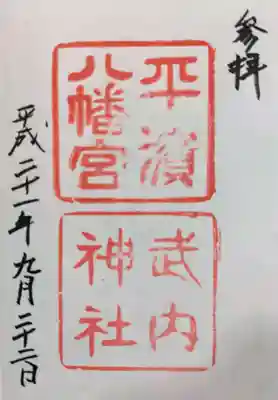 参拝
平濱
八幡宮
武内
神社
平成二十一年九月二十二日